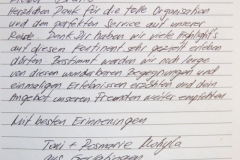 Herzlichen Dank für die tolle Organisation
und den perfekten Service auf unserer
Reise. Dank Dir haben wir viele Highlights
auf diesem Kontinent sehr gezielt erleben
dürfen. Bestimmt werden wir noch lange
von diesen wunderbaren Begegnungen und
einmaligen Erlebnissen erzählen und dein
Angebot unseren Freunden weiter empfehlen.
Mit besten Erinnerungen
Toni + Rosmarie
aus